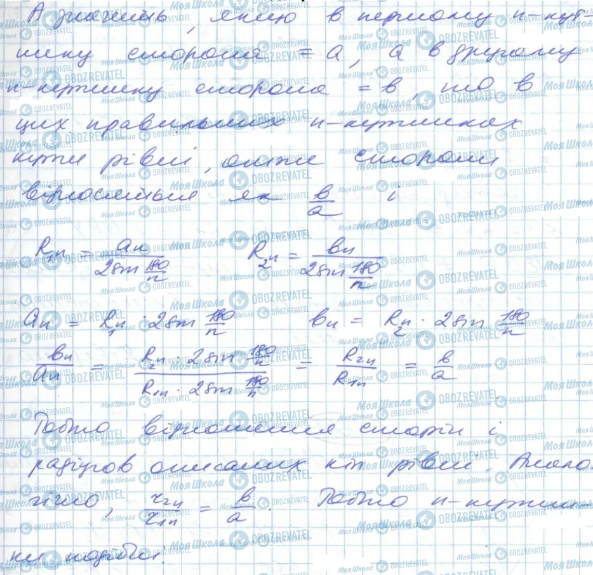 А значить, якщо в першому n-кут-
нику сторона = a, а в другому
n-кутнику сторона = в, то в
цих правильних n-кутниках
кути рівні, отже сторони
відносяться як в/a і
R₁n = an / 2sin 180/n   R₂n = вn / 2sin 180/n
an = R₁n · 2sin 180/n   вn = R₂n · 2sin 180/n
вn/an = R₂n · 2sin 180/n / R₁n · 2sin 180/n = R₂n/R₁n = в/a
Тобто відношення сторін і
радіусов описаних кіл рівні. Анало-
гічно, r₂n/r₁n = в/a. Тобто n-кутни-
ки подібні.